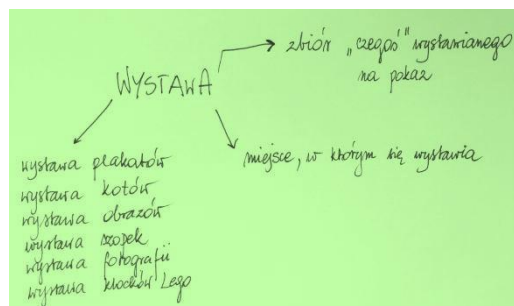 zbiór „czegoś” wystawianego
na pokaz
WYSTAWA
miejsce, w którym się wystawia
wystawa plakatów
wystawa kotów
wystawa obrazów
wystawa szopek
wystawa fotografii
wystawa klocków Lego